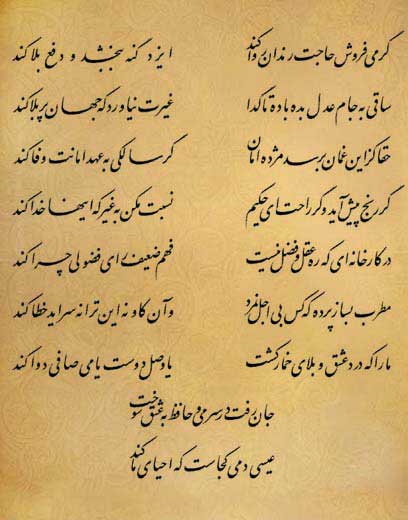 گر می فروش حاجت رندان روا کند ایزد گنه ببخشد و دفع بلا کند
ساقی به جام عدل بده باده تا گدا غیرت نیاورد که جهان پر بلا کند
حقا کز این غمان برسد مژده امان گر سالکی به عهد امانت وفا کند
گر رنج پیش آید و گر راحت ای حکیم نسبت مکن به غیر که اینها خدا کند
در کارخانه ای که ره عقل و فضل نیست فهم ضعیف رای فضولی چرا کند
مطرب بساز پرده که کس بی اجل نمرد وآن کاو نه این ترانه سراید خطا کند
ما را که درد عشق و بلای خمار کشت یا وصل دوست یا می صافی دوا کند
جان برفت در سر می و حافظ به عشق سوخت
عیسی دمی کجاست که احیای ما کند